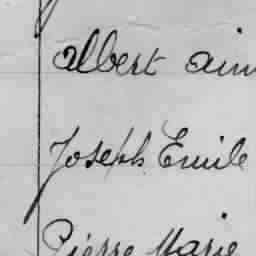 albert aim
Joseph Emile
Pierre Marie